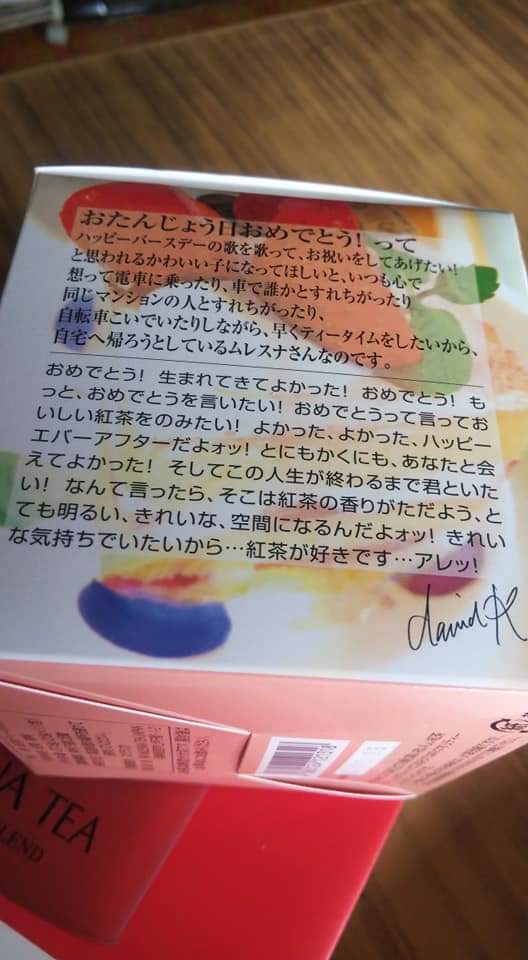 おたんじょう日おめでとう! って
ハッピーバースデーの歌を歌って、お祝いをしてあげたい!
と思われるかわいい子になってほしいと、いつも心で
想って電車に乗ったり、車で誰かとすれちがったり
同じマンションの人とすれちがったり、
自転車こいでいたりしながら、早くティータイムをしたいから、
自宅へ帰ろうとしているムレスナさんなのです。
おめでとう! 生まれてきてよかった! おめでとう! も
っと、おめでとうを言いたい! おめでとうって言ってお
いしい紅茶をのみたい! よかった、よかった、ハッピー
エバーアフターだよォッ! とにもかくにも、あなたと会
えてよかった! そしてこの人生が終わるまで君といた
い! なんて言ったら、そこは紅茶の香りがただよう、と
ても明るい、きれいな、空間になるんだよォッ! きれい
な気持ちでいたいから…紅茶が好きです…アレッ!
TEA